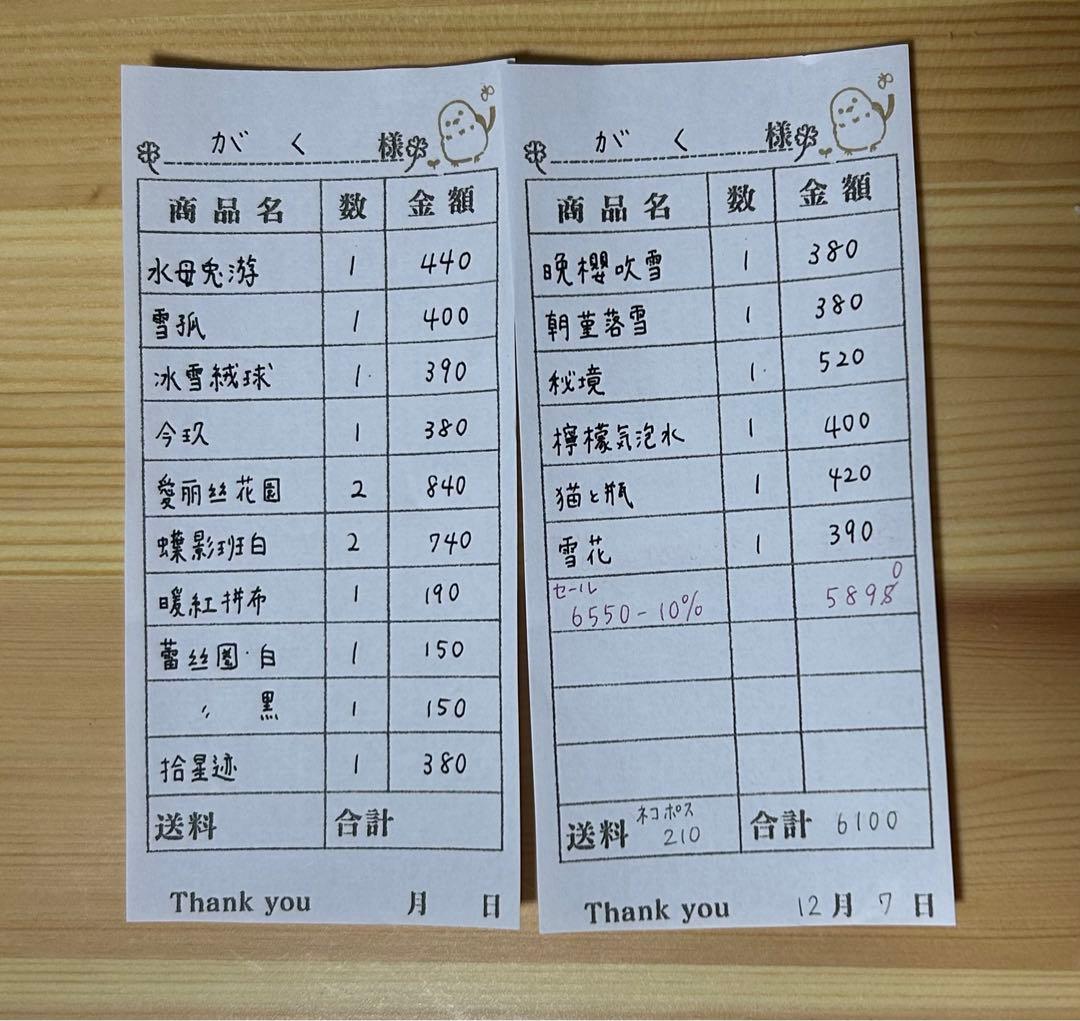 がく 様
商品名 数 金額
水母兔游 1 440
雪孤 1 400
冰雪絨球 1 390
今玖 1 380
愛丽丝花園 2 840
蝶影班白 2 740
暖紅拼布 1 190
蕾丝圏・白 1 150
〃 黒 1 150
拾星迹 1 380
送料 合計
Thank you 月 日
がく 様
商品名 数 金額
晚櫻吹雪 1 380
朝堇落雪 1 380
秘境 1 520
檸檬気泡水 1 400
猫と瓶 1 420
雪花 1 390
セール
6550-10% 5890
送料 ネコポス 210 合計 6100
Thank you 12月 7日